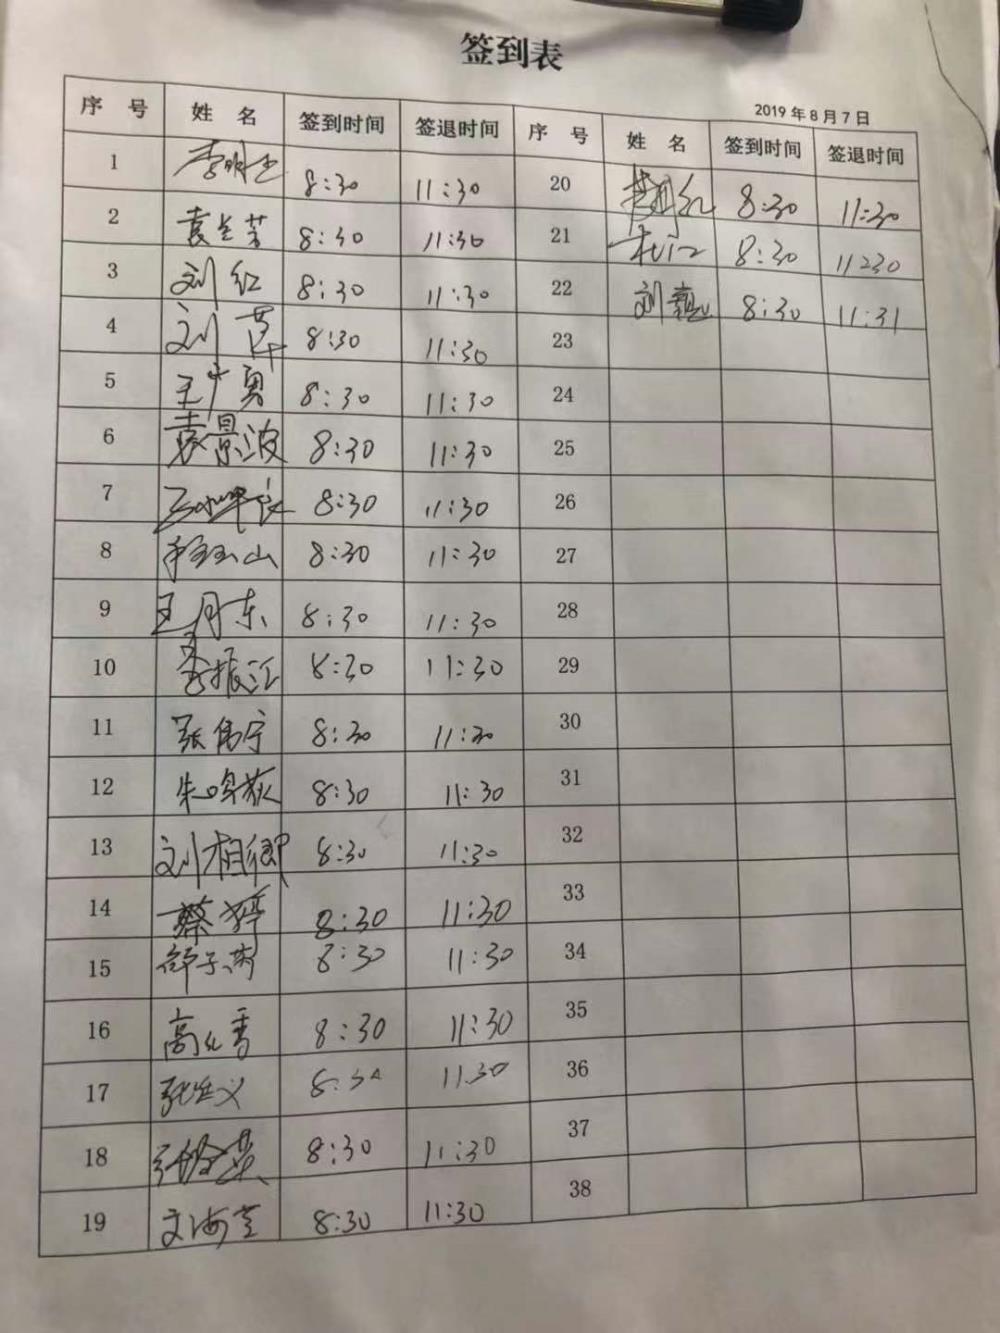 签到表
2019年8月7日
序 号 姓 名 签到时间 签退时间 序 号 姓 名 签到时间 签退时间
1 8:30 11:30 20 8:30 11:30
2 袁兰芳 8:30 11:30 21 8:30 11230
3 刘红 8:30 11:30 22 刘 8:30 11:31
4 刘萍 8:30 11:30 23
5 王广勇 8:30 11:30 24
6 袁景波 8:30 11:30 25
7 8:30 11:30 26
8 8:30 11:30 27
9 王月东 8:30 11:30 28
10 李振江 8:30 11:30 29
11 张伟宁 8:30 11:30 30
12 朱鸣荻 8:30 11:30 31
13 刘相卿 8:30 11:30 32
14 蔡婷 8:30 11:30 33
15 8:30 11:30 34
16 高红香 8:30 11:30 35
17 8:30 11.30 36
18 8:30 11:30 37
19 文海芝 8:30 11:30 38